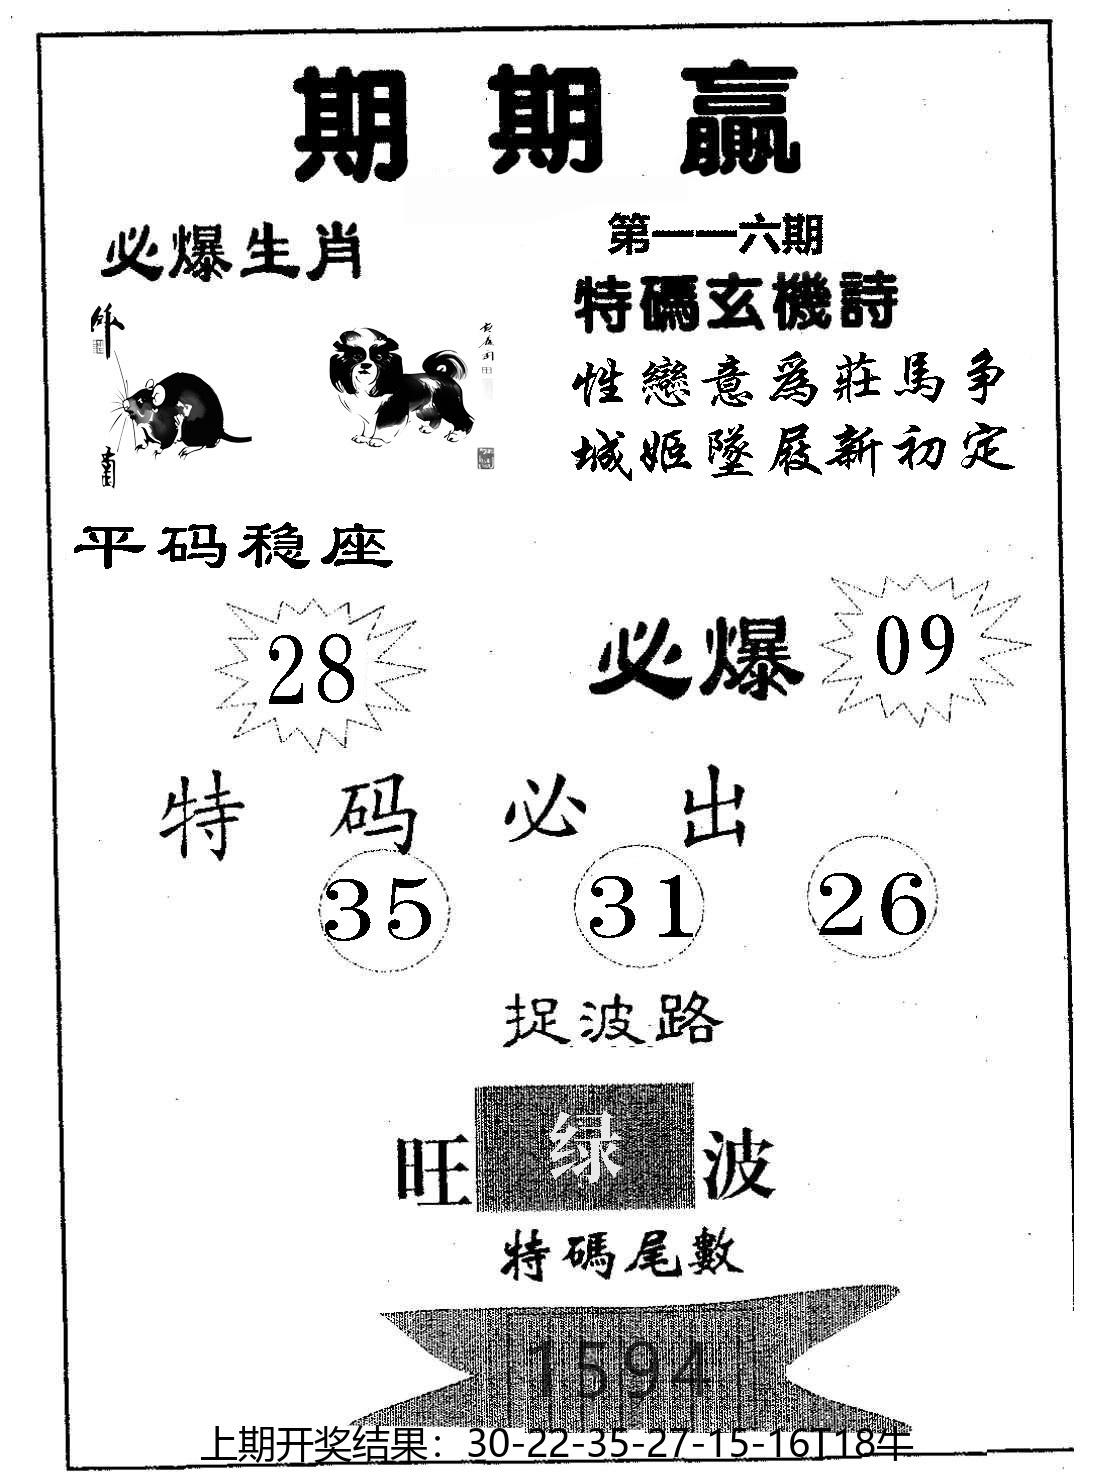 期期贏
必爆生肖
第一一六期
特碼玄機詩
性戀意為莊馬争
城姬墜屐新初定
平码稳座
28
必爆
09
特码必出
35 31 26
捉波路
旺绿波
特碼尾數
1594
上期开奖结果：30-22-35-27-15-16T18牛